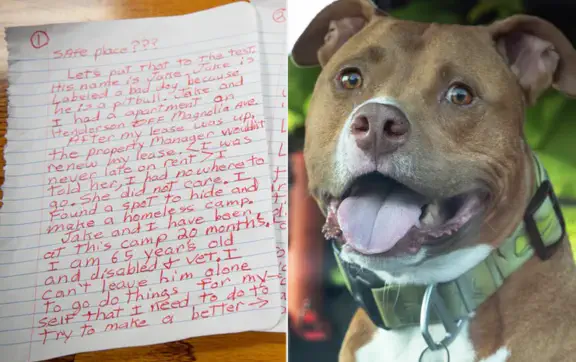 ①
SAFE place???
Let's put that to the test.
His name is Jake. Jake is
Labeled a bad dog, because
he is a pitbull. Jake and
I had a apartment on
Henderson off Magnolia Ave
After my lease was up,
the property Manager wouldn't
renew my lease. I was
never late on rent. I
told her, I had nowhere to
go. She did not care. I
found a spot to hide and
make a homeless camp.
Jake and I have been
at this camp 20 months.
I am 65 years old
and disabled vet. I
can't leave him alone
to go do things for my-
self that I need to do to
try to make a better →
②